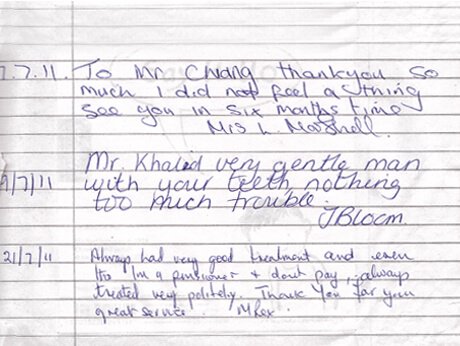 7.7.11. To Mr Chiang thankyou so
much I did not feel a thing
see you in six months time
Mrs L. Marshell.
Mr. Khalid very gentle man
9/7/11 with your teeth nothing
too much trouble.
JBloom.
21/7/11 Always had very good treatment and even
tho I'm a pensioner + dont pay, always
treated very politely. Thank You for your
great service. M Rex.